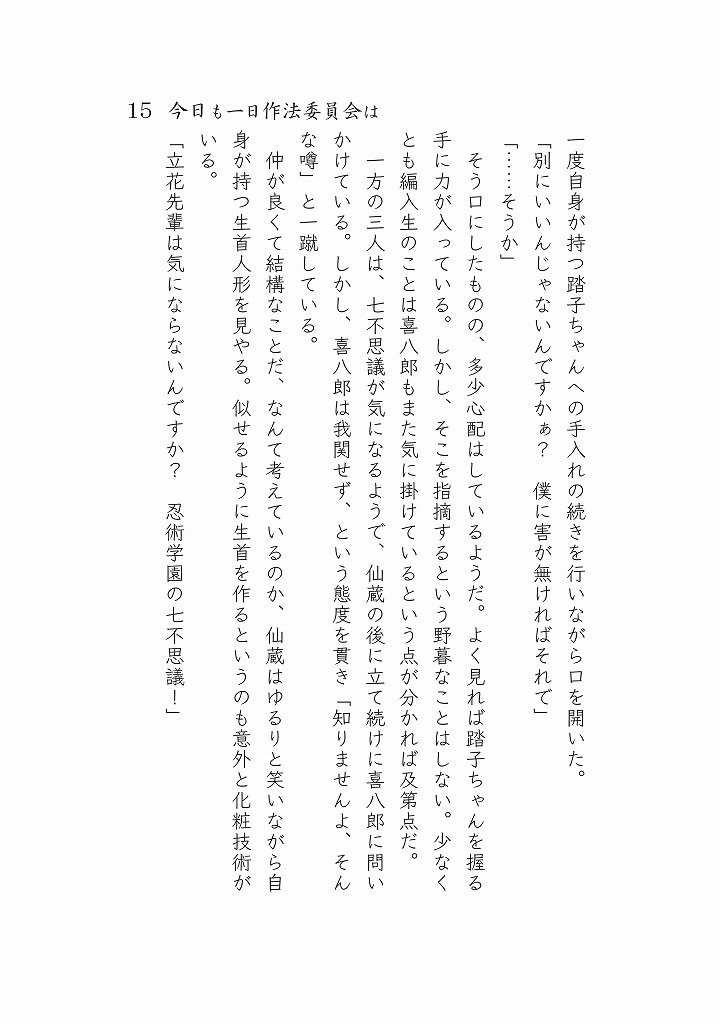 15 今日も一日作法委員会は
一度自身が持つ踏子ちゃんへの手入れの続きを行いながら口を開いた。
「別にいいんじゃないんですかぁ？　僕に害が無ければそれで」
「……そうか」
　そう口にしたものの、多少心配はしているようだ。よく見れば踏子ちゃんを握る
手に力が入っている。しかし、そこを指摘するという野暮なことはしない。少なく
とも編入生のことは喜八郎もまた気に掛けているという点が分かれば及第点だ。
　一方の三人は、七不思議が気になるようで、仙蔵の後に立て続けに喜八郎に問い
かけている。しかし、喜八郎は我関せず、という態度を貫き「知りませんよ、そん
な噂」と一蹴している。
　仲が良くて結構なことだ、なんて考えているのか、仙蔵はゆるりと笑いながら自
身が持つ生首人形を見やる。似せるように生首を作るというのも意外と化粧技術が
いる。
「立花先輩は気にならないんですか？　忍術学園の七不思議！」